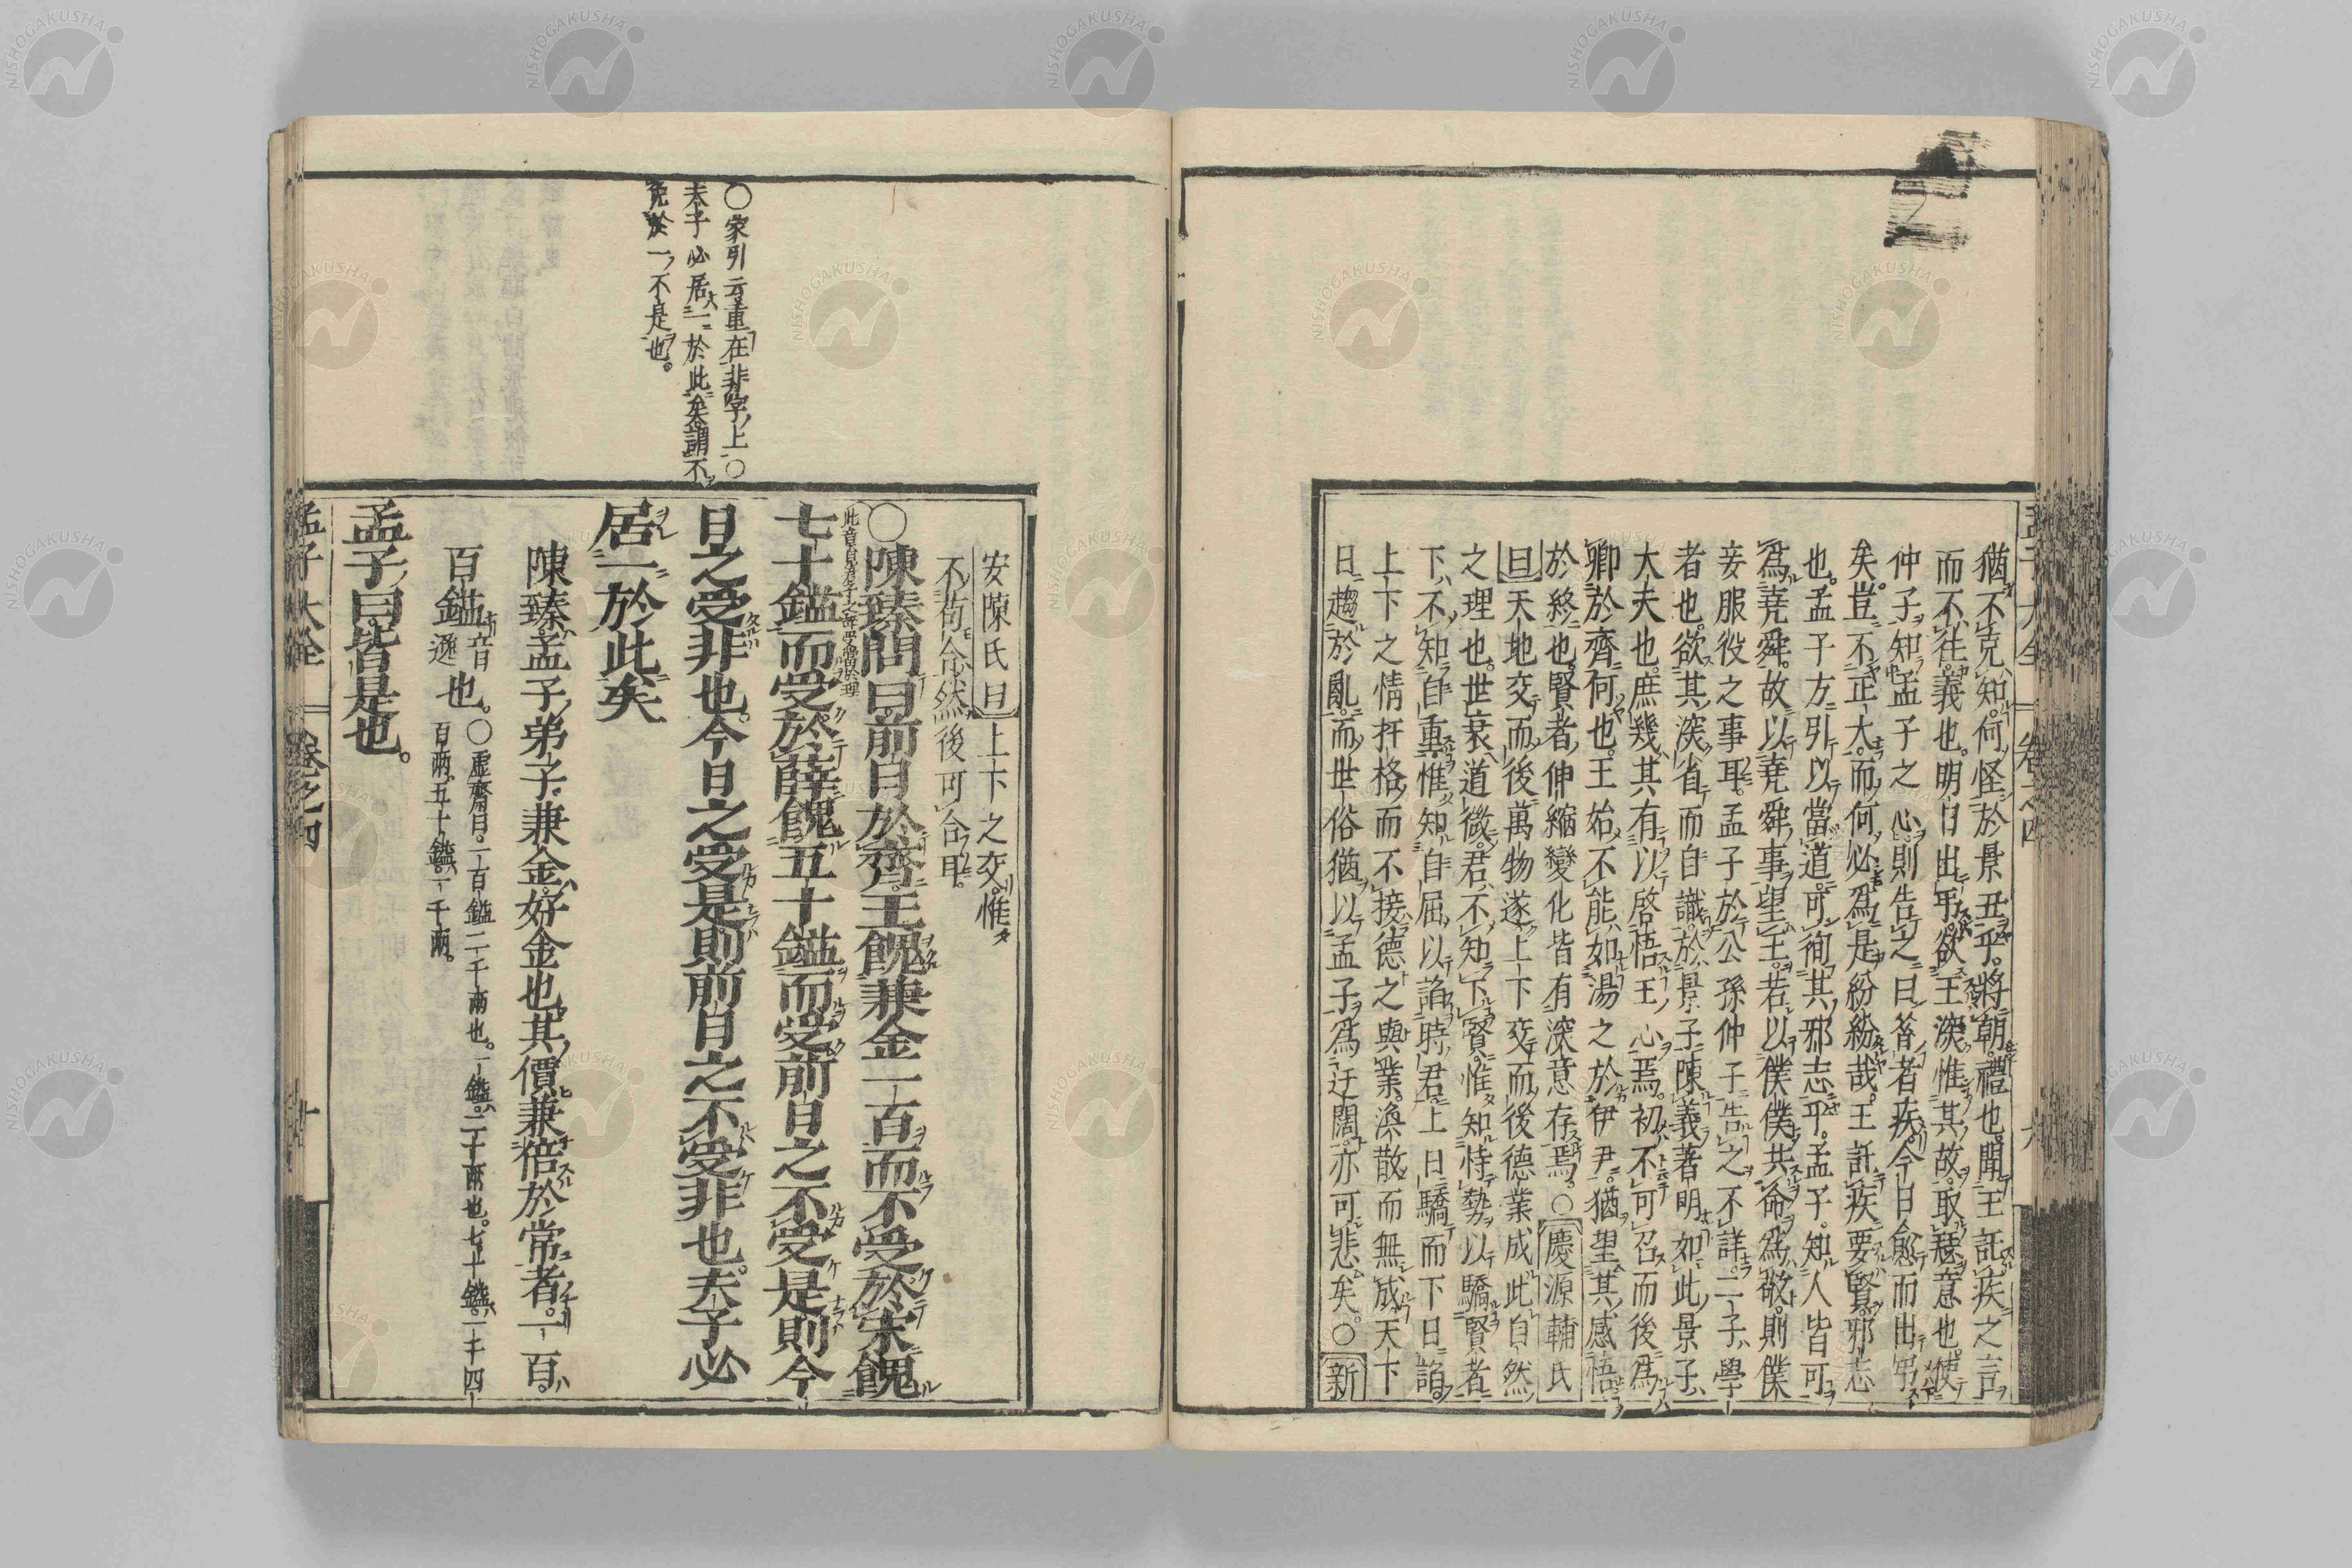 猶不克知何怪於景丑乎將朝禮也聞王託疾之言
而不往義也明日出弔欲王深惟其故取瑟意也使
仲子知孟子之心則告之曰昔者疾今日愈而出弔
矣豈不正大而何必爲是紛紛哉王託疾要賢邪志
也孟子方引以當道可徇其邪志乎孟子知人皆可
爲堯舜故以堯舜事望王若以僕僕共命爲敬則僕
妾服役之事耳孟子於公孫仲子告之不詳二子學
者也欲其深省而自識於景子陳義著明如此景子
大夫也庶幾其有以啓悟王心焉初不可召而後爲
卿於齊何也王始不能如湯之於伊尹猶望其感悟
於終也賢者伸縮變化皆有深意存焉○慶源輔氏
曰天地交而後萬物遂上下交而後德業成此自然
之理也世衰道微君不知下賢惟知恃勢以驕賢者
下不知自重惟知自屈以諂時君上日驕而下日諂
上下之情扞格而不接德之與業渙散而無成天下
日趨於亂而世俗猶以孟子爲迂闊亦可悲矣○新
安陳氏曰上下之交惟
不苟合然後可合耳
○陳臻問曰前日於齊王餽兼金一百而不受於宋餽
此章見君子之辭受當於理
七十鎰而受於薛餽五十鎰而受前日之不受是則今
日之受非也今日之受是則前日之不受非也夫子必
居一於此矣
陳臻孟子弟子兼金好金也其價兼倍於常者一百
百鎰音逆也○虛齋曰一百鎰二千兩也一鎰二十兩也七十鎰一千四
百兩五十鎰一千兩
孟子曰皆是也
孟子大全 卷之四 十
○家引云重在非字上○
夫子必居一於此矣謂不
免於一不是也